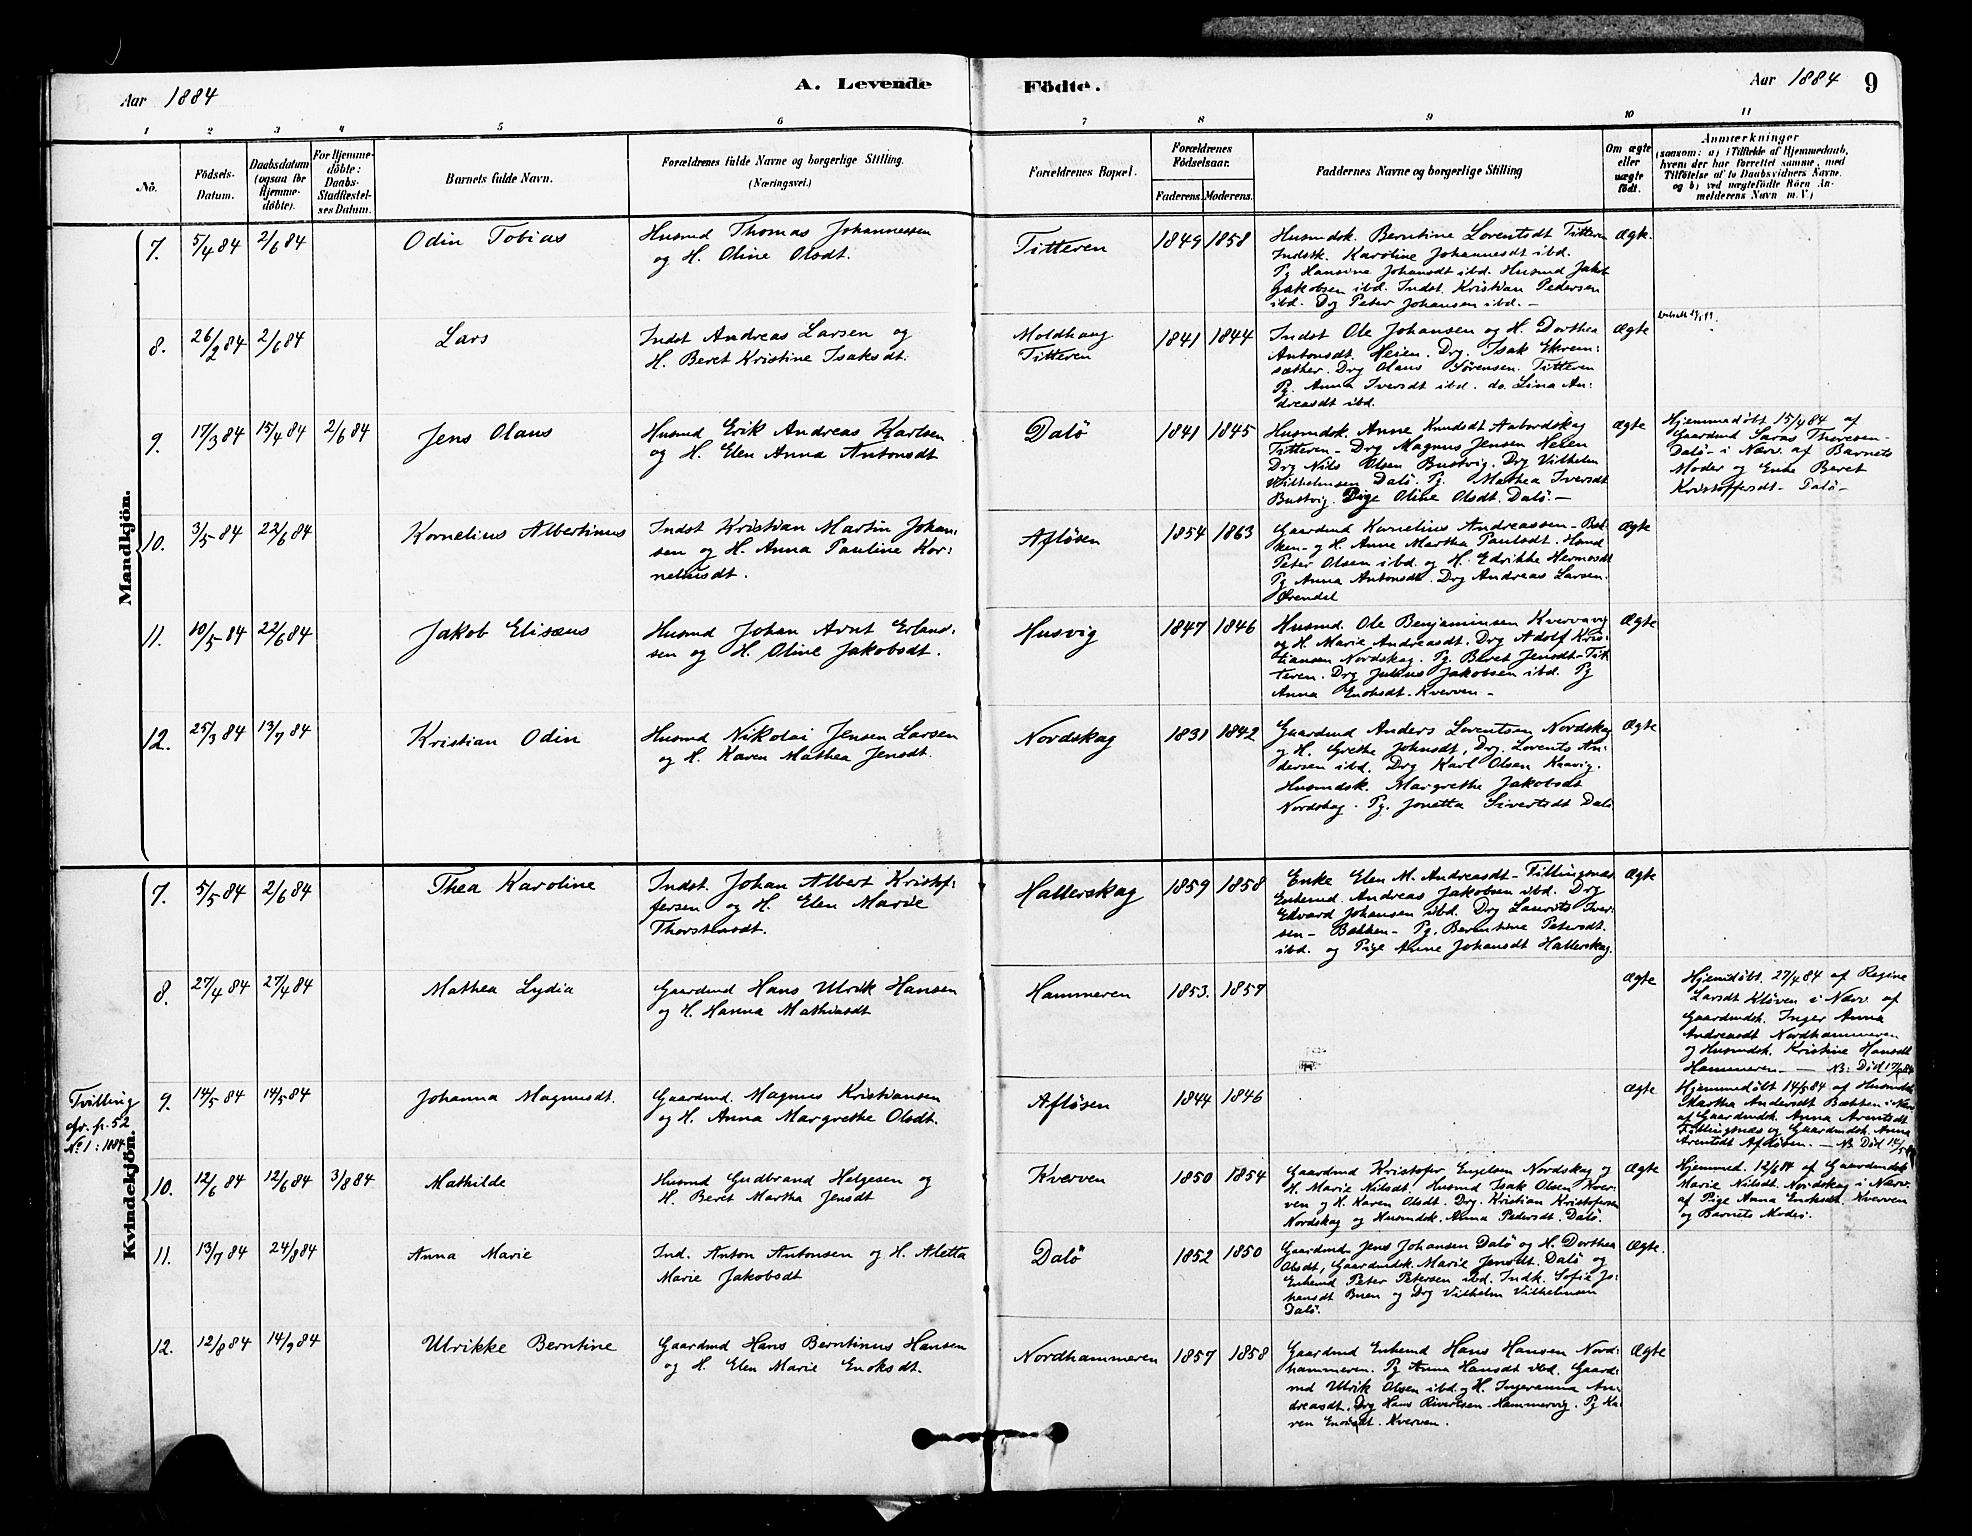 Aar 1884
A. Levende
Födte.
Aar 1884
9
1 2 3 4 5 6 7 8 9 10 11
No.
Födsels-
Datum.
Daabsdatum
(ogsaa för
Hjemme-
döbte).
For Hjemme-
döbte:
Daabs-
Stadfæstel-
ses Datum.
Barnets fulde Navn.
Forældrenes fulde Navne og borgerlige Stilling.
(Næringsvei.)
Forældrenes Bopæl.
Forældrenes
Födselsaar.
Faderens. Moderens.
Faddernes Navne og borgerlige Stilling
Om ægte
eller
uægte
født.
Anmærkninger
(saasom: a) i Tilfælde af Hjemmedaab,
hvem der har forrettet samme, med
Tilföielse af to Daabsvidners Navne,
og b) ved uægtefödte Börn An-
melderens Navn m. V.)
Mandkjön.
7. 5/4 84 2/6 84
Odin Tobias
Husmd Thomas Johannessen
og H. Oline Olsdt.
Titteren
1849 1858
Husmdsk. Berntine Lorentsdt Titteren
Indstk. Karoline Johannesdt ibd.
Pg Hansine Johansdt ibd. Husmd Jakob
Jakobsen ibd. Indst. Kristian Pedersen
ibd. Drg Peter Johansen ibd. -
Ægte.
8. 26/2 84 2/6 84
Lars
Indst Andreas Larsen og
H. Beret Kristine Isaksdt.
Moldhaug
Titteren
1841 1844
Indst Ole Johansen og H. Dorthea
Antonsdt. Heien. Drg. Isak Ekrem-
sæther. Drg Olaus Sørensen. Titteren
Pg. Anna Iversdt ibd. do. Lina An-
dreasdt ibd.
Ægte
9. 17/3 84 15/4 84 2/6 84
Jens Olaus
Husmd Erik Andreas Karlsen
og H. Elen Anna Antonsdt
Dalö
1841 1845
Husmdsk. Anne Knudsdt Nabordskag
Titteren - Drg Magnus Jensen Heien
Drg Nils Olsen Bustvig. Drg Vilhelm
Wilhelmsen Dalö. Pg. Mathea Iversdt
Bustvig. Pige Oline Olsdt. Dalö. -
Ægte
Hjemmedøbt 15/4 84 af
Gaardmd Laras Thoresen-
Dalö - i Nærv. af Barnets
Moder og Enke Beret
Kristoffersdt - Dalö -
10. 3/5 84 22/6 84
Kornelius Albertinus
Indst Kristian Martin Johan-
sen og H. Anna Pauline Kor-
neliusdt.
Afløsen
1854 1863
Gaardmd Kornelius Andreassen - Bæk-
ken - og H. Anne Martha Paulsdt. Husmd
Peter Olsen ibd. og H. Edrikke Hermosdt
Pg Anna Antonsdt. Drg Andreas Larsen.
Ørendel
Ægte
11. 10/5 84 22/6 84
Jakob Elisæus
Husmd Johan Arnt Erland-
sen og H. Oline Jakobsdt.
Husvig
1847 1846
Husmd. Ole Benjaminsen Kvervavig
og H. Marie Andreasdt. Drg Adolf Kris-
tiansen Nordskag. Pg. Beret Jensdt - Tit-
teren. Drg Julius Jakobsen ibd. Pg
Anna Enoksdt - Kverven -
Ægte
12. 25/3 84 13/7 84
Kristian Odin
Husmd Nikolai Jensen Larsen
og H. Karen Mathea Jensdt.
Nordskag
1831 1842
Gaardmd Anders Lorentsen Nordskag
og H. Grethe Johnsdt, Drg. Lorents An-
dersen ibd. Drg Karl Olsen Kaavig.
Husmdsk. Margrethe Jakobsdt
Nordskag. Pg. Jonetta Sivertsdt Dalö
Ægte
Kvindekjön.
7. 5/5 84 2/6 84
Thea Karoline
Indst. Johan Albert Kristof-
fersen og H. Elen Marie
Thorstensdt.
Hallerskag
1859 1858
Enke Elen M. Andreasdt - Fillingsnæs
Enkemd. Andreas Jakobsen ibd. Drg
Edvard Johansen ibd. Drg Laurits Iver-
sen - Bækken - Pg. Berntine Petersdt.
ibd. og Pige Anne Johansdt Hallerskag.
Ægte
8. 27/4 84 27/4 84
Mathea Lydia
Gaardmd Hans Ulrik Hansen
og H. Hanna Mathiasdt
Hammeren
1853. 1857
Ægte
Hjemdøbt. 27/4 84 af Regine
Larsdt Kløven i Nærv. af
Gaardmdsk. Inger Anna
Andreasdt Nordhammeren
og Husmdsk. Kristine Hansdt
Hammeren. - NB: Död
Tvilling
cfr. p. 52
No 1: 1884
9. 14/5 84 14/5 84
Johanna Magnusdt.
Gaardmd. Magnus Kristiansen
og H. Anna Margrethe Olsdt.
Afløsen
1844 1846
Ægte
Hjemmedøbt 14/5 84 af Husmdsk
Martha Andersdt Bækken i Nærv
af Gaardmdsk. Anna Arentsdt
Fillingsnæs og Gaardmdsk. Anna
Arentsdt Afløsen. - NB Död 14/5 84
10. 12/6 84 12/6 84 3/8 84
Mathilde
Husmd Gudbrand Helgesen og
H. Beret Martha Jensdt
Kverven
1850 1854
Gaardmd Kristofer Engelsen Nordskag og
H. Marie Nilsdt. Husmd Isak Olsen Kver-
ven og H. Karen Olsdt. Drg. Kristian Kristofersen
Nordskag og Husmdsk. Anna Pedersdt. Dalö.
Ægte
Hjemmed. 12/6 84 af Gaardmdsk
Marie Nilsdt. Nordskag i Nærv.
af Pige Anna Enoksdt. Kverven
og Barnets Moder.
11. 13/7 84 24/8 84
Anna Marie
Ind. Anton Antonsen og H. Aletta
Marie Jakobsdt
Dalö
1852 1850
Gaardmd Jens Johansen Dalö og H. Dorthea
Olsdt, Gaardmdsk. Marie Jensdt. Dalö og
Enkemd Peter Petersen ibd. Indk. Sofie Jo-
hansdt Buen og Drg Vilhelm Vilhelmsen
Dalö.
Ægte.
12. 12/8 84 14/9 84
Ulrikke Berntine
Gaardmd Hans Berntinus Hansen
og H. Elen Marie Enoksdt.
Nordhammeren
1857 1858
Gaardmd Enkemd Hans Hansen Nord-
hammeren. Pg Anna Hansdt ibd. Gaard-
md Ulrik Olsen ibd. og H. Ingeranna An-
dreasdt. Drg Hans Sivertsen - Hammervig. Pg Ka-
ren Enoksdt. Kverven.
Ægte